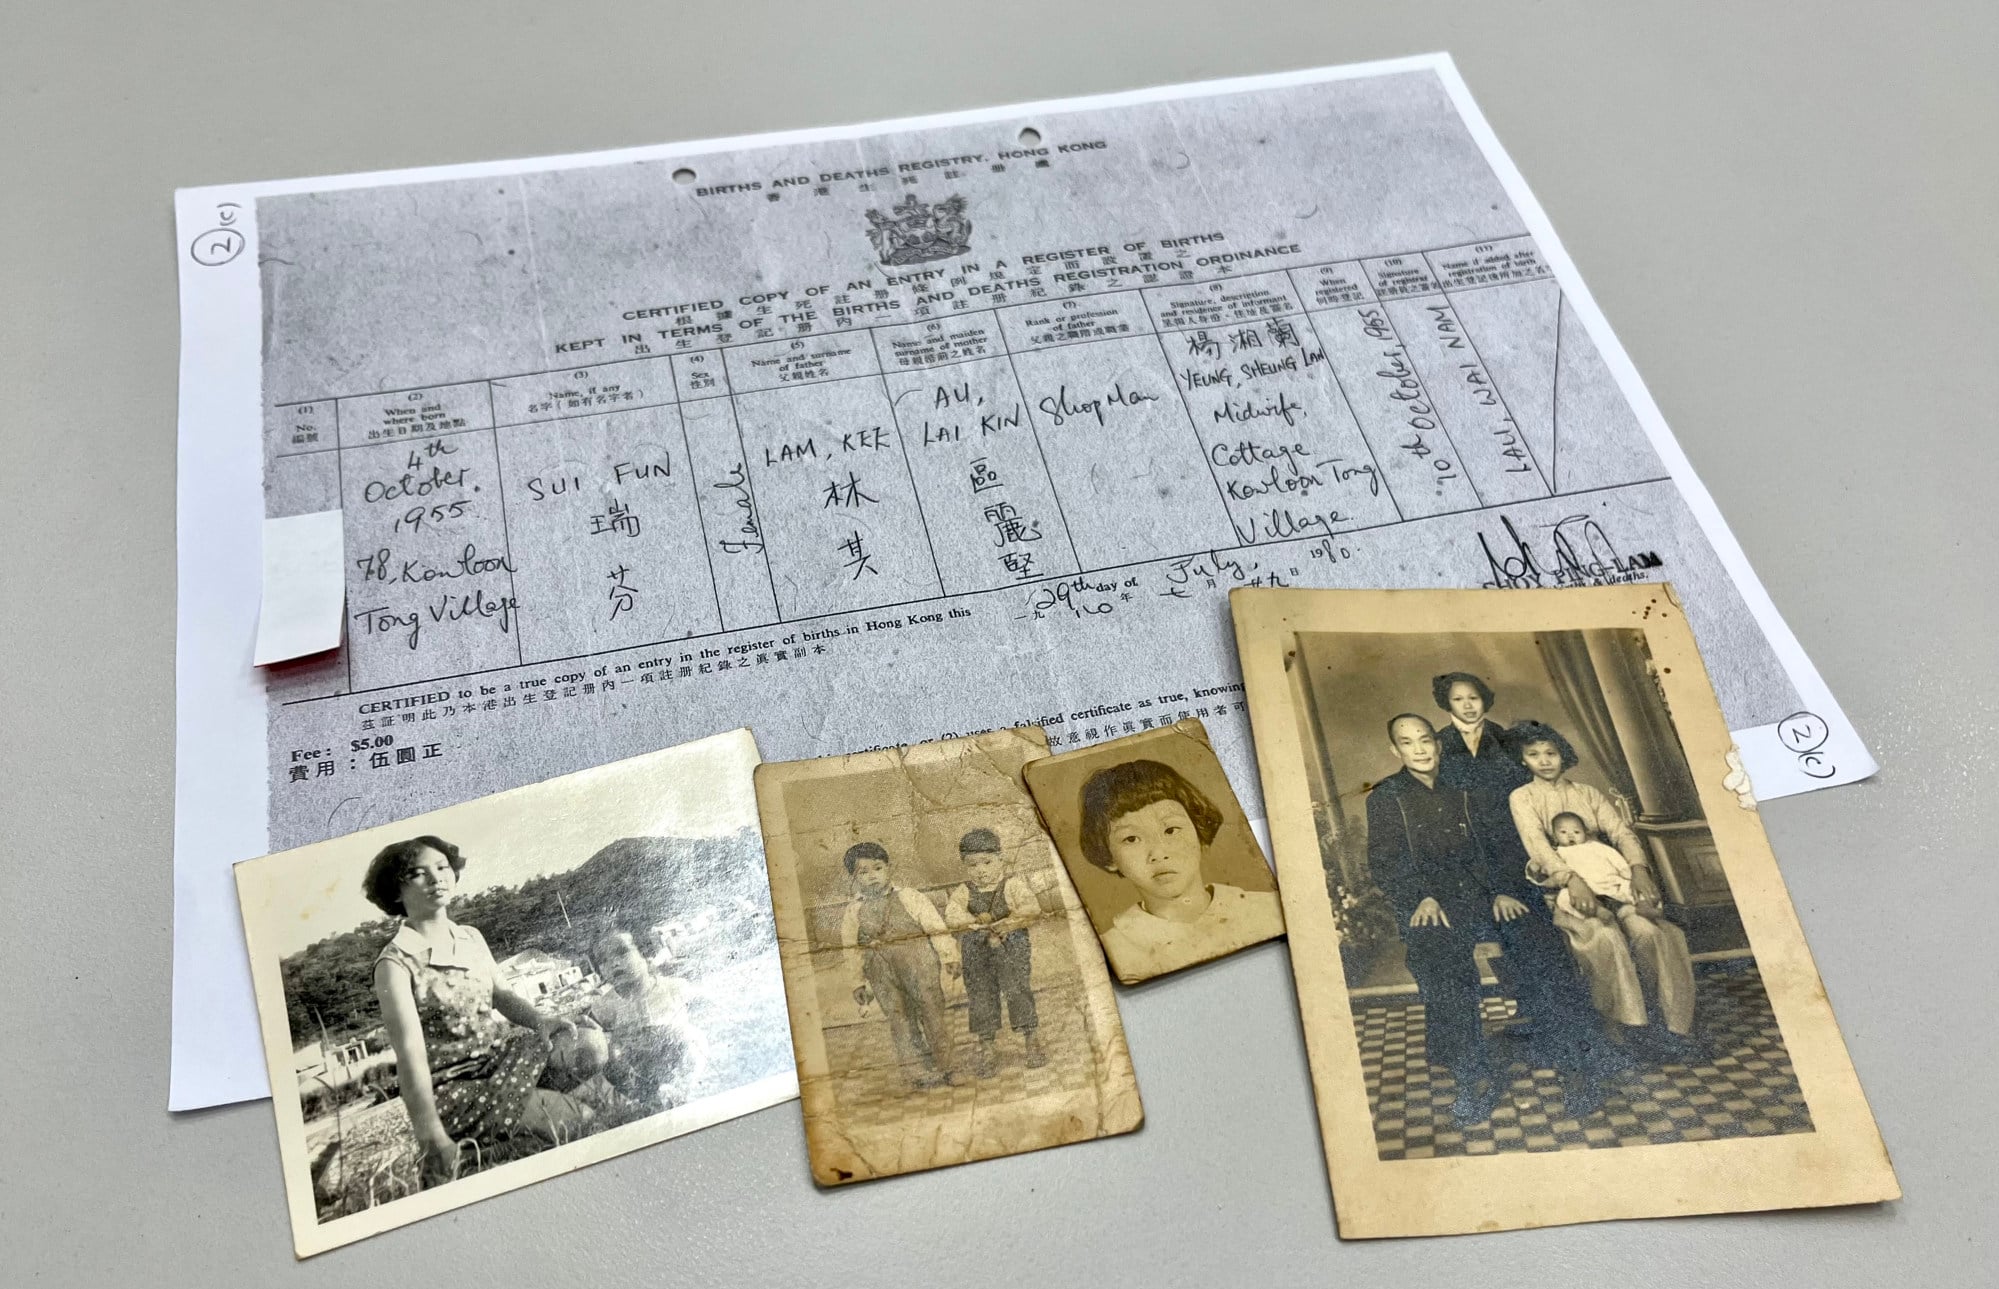 2(c)
BIRTHS AND DEATHS REGISTRY, HONG KONG
香港生死註冊處
CERTIFIED COPY OF AN ENTRY IN A REGISTER OF BIRTHS
根據生死註冊條例規定而設置之
KEPT IN TERMS OF THE BIRTHS AND DEATHS REGISTRATION ORDINANCE
出生登記冊內一項註冊紀錄之證本
(1)
No.
編號
(2)
When and
where born
出生日期及地點
4th
October,
1955
78, Kowloon
Tong Village
(3)
Name, if any
名字（如有名字者）
SUI FUN
瑞
芬
(4)
Sex
性別
Female
(5)
Name and surname
of father
父親姓名
LAM, KEE
林
其
(6)
Name and maiden
surname of mother
母親婚前之姓名
AU,
LAI KIN
區
麗
堅
(7)
Rank or profession
of father
父親之職階或職業
Shop Man
(8)
Signature, description
and residence of informant
楊湘蘭
YEUNG, SHEUNG LAN
Midwife,
Cottage
Kowloon Tong
Village.
(9)
When
registered
何時登記
10th October, 1955
(10)
Signature
of registrar
LAU, WAI NAM
(11)
Name if added after
registration of birth
CERTIFIED to be a true copy of an entry in the register of births in Hong Kong this 29th day of July, 1980.
茲証明此乃本港出生登記冊內一項註冊紀錄之真實副本 一九八〇年七月廿九日
CHOY PING-LAM
& deaths.
Fee: $5.00
費用：伍圓正
(2) uses a falsified certificate as true, knowing
故意視作真實而使用者可
2(c)